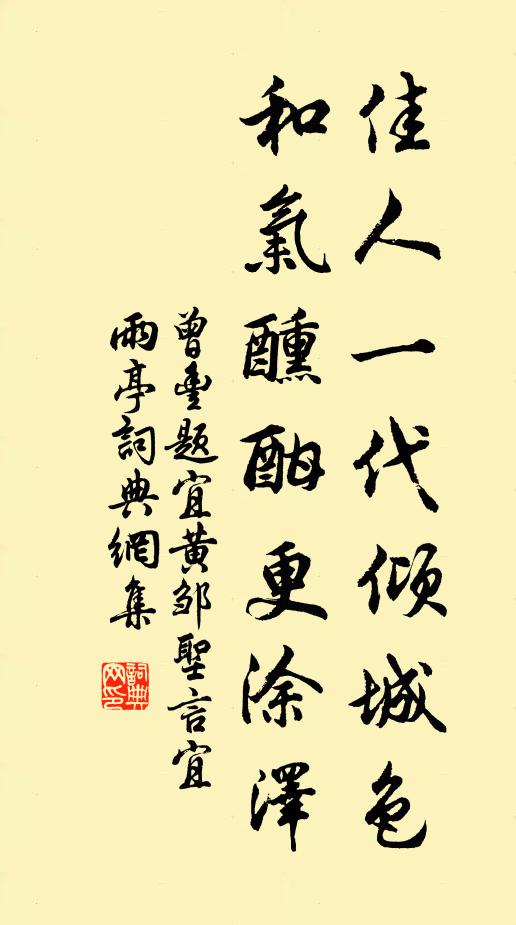 佳人一代傾城色
和氣醺酣更涂澤
曾豊題宜黄邹聖言宜
雨亭詞典網集
詞典网印